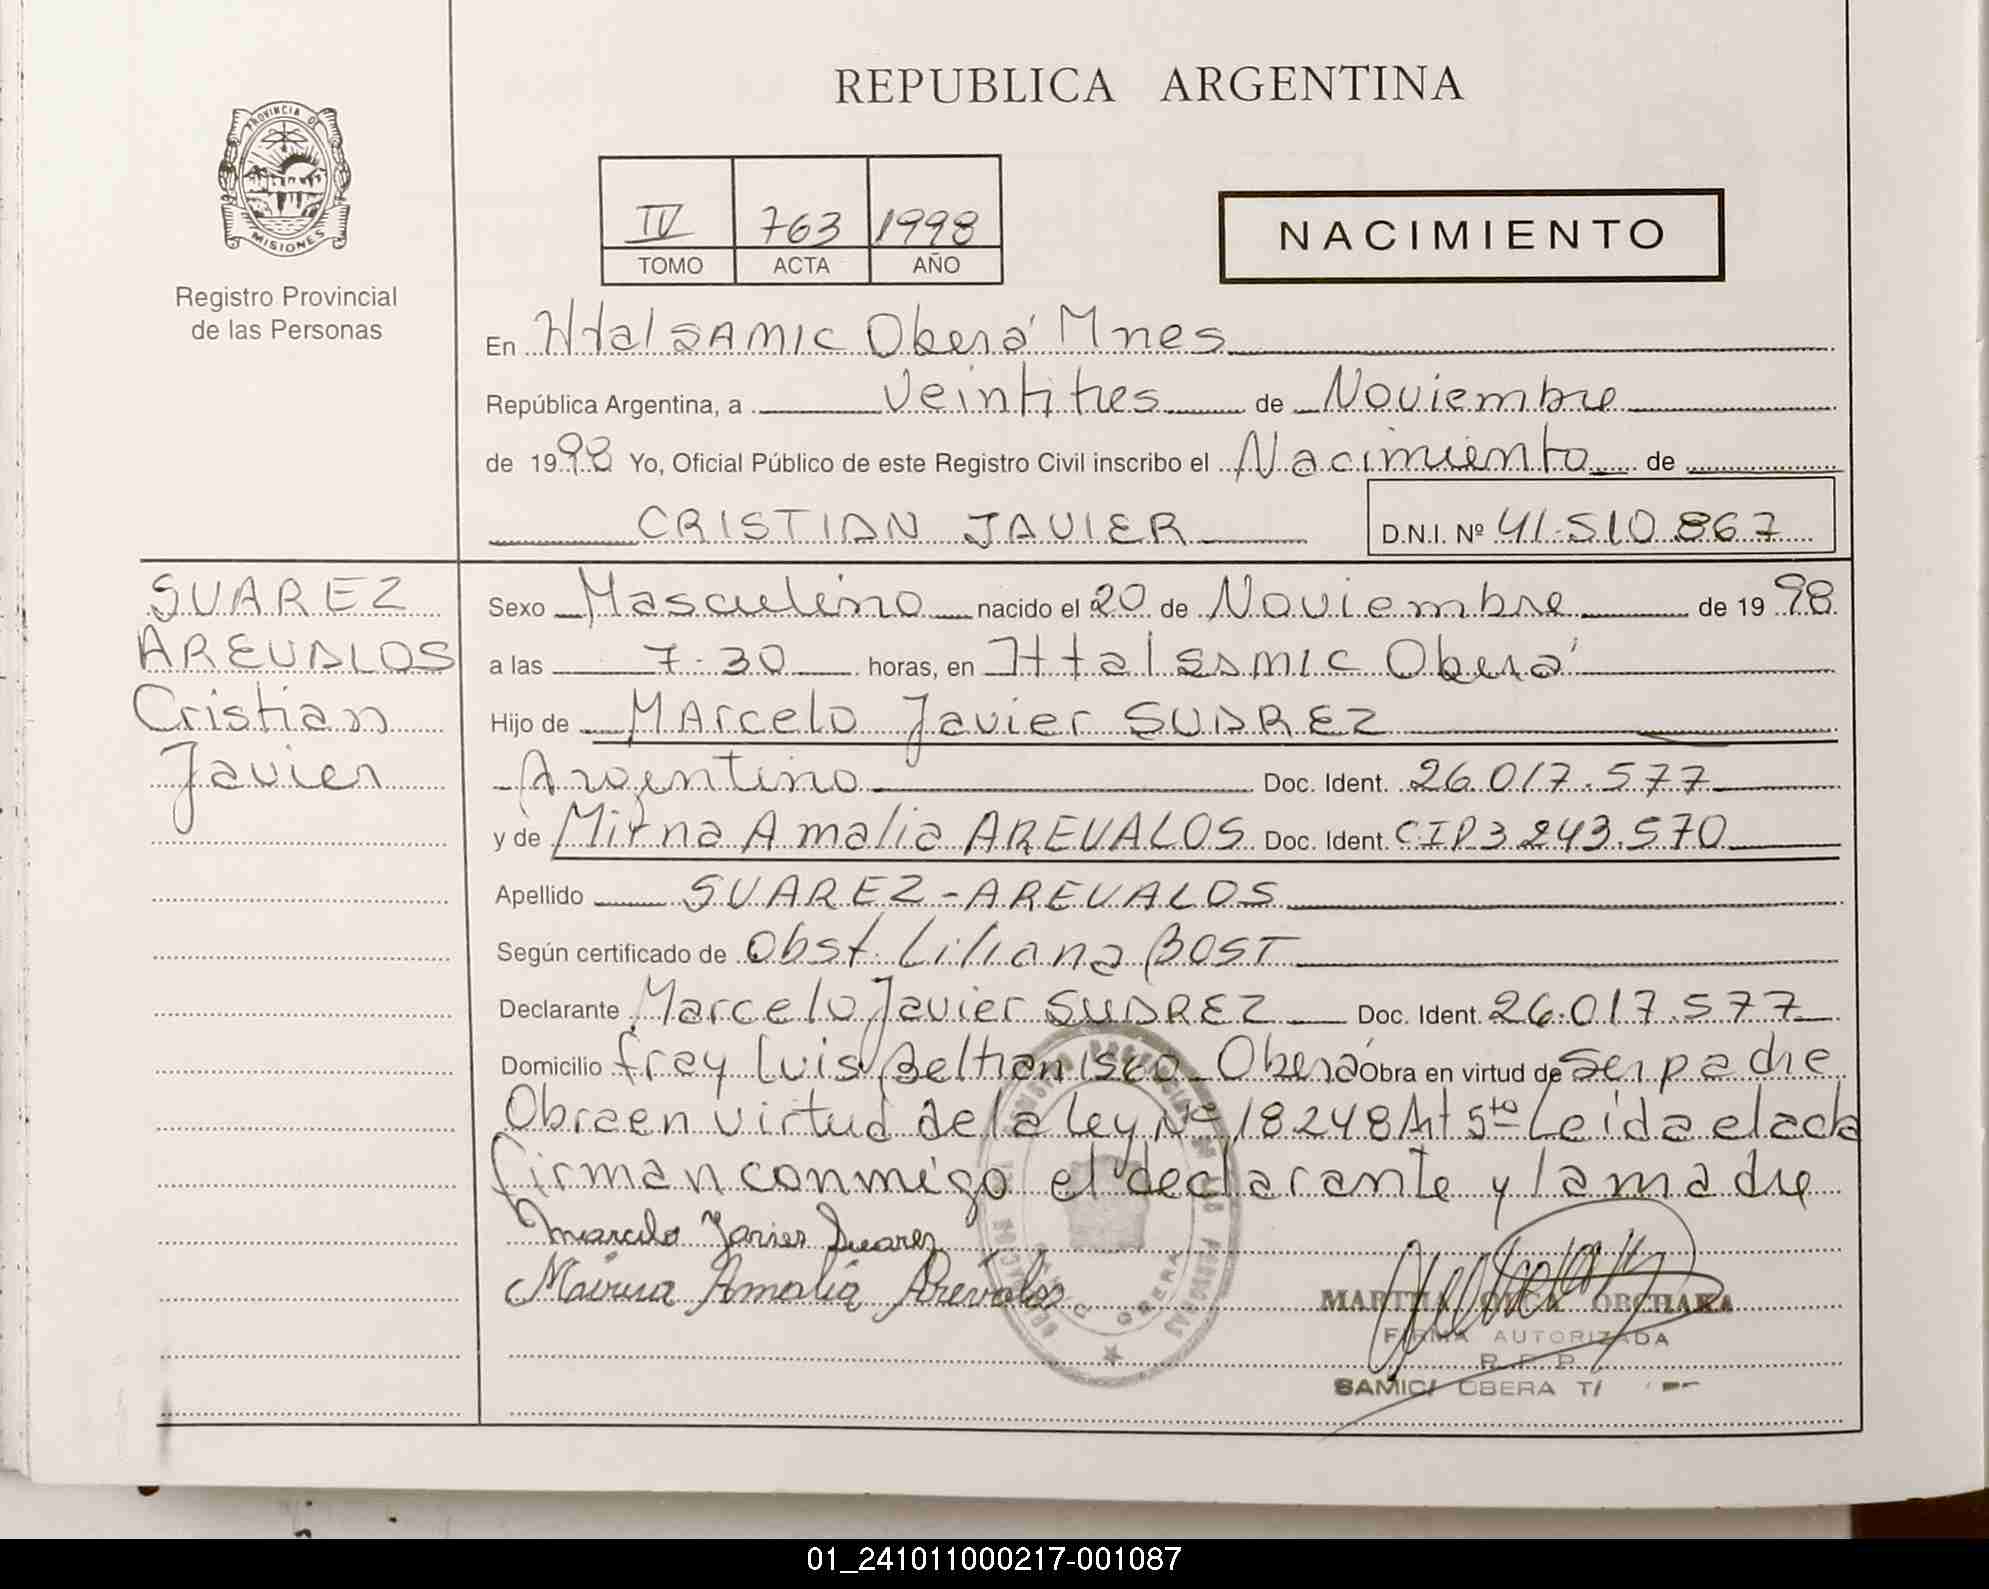 REPUBLICA ARGENTINA
PROVINCIA DE
MISIONES
Registro Provincial
de las Personas
IV 763 1998
TOMO ACTA AÑO
NACIMIENTO
En Htal SAMIC Oberá Mnes
República Argentina, a veintitres de Noviembre
de 1998 Yo, Oficial Público de este Registro Civil inscribo el Nacimiento de
CRISTIAN JAVIER D.N.I. Nº 41.510.867
SUAREZ
AREVALOS
Cristian
Javier
Sexo Masculino nacido el 20 de Noviembre de 1998
a las 7.30 horas, en Htal SAMIC Oberá
Hijo de Marcelo Javier SUAREZ
Argentino Doc. Ident. 26.017.577
y de Mirna Amalia AREVALOS Doc. Ident. CIP 3.243.570
Apellido SUAREZ-AREVALOS
Según certificado de Obst. Liliana BOST
Declarante Marcelo Javier SUAREZ Doc. Ident. 26.017.577
Domicilio fray Luis Beltran Oberá Obra en virtud de ser padre
Obra en virtud de la ley Nº 18.248 Art 5to Leida el acta
firman conmigo el declarante y la madre
Marcelo Javier Suarez
Mirna Amalia Arévalos
OBERA
MARTHA ORCHAKA
FIRMA AUTORIZADA
R.P.P.
SAMIC OBERA
01_241011000217-001087